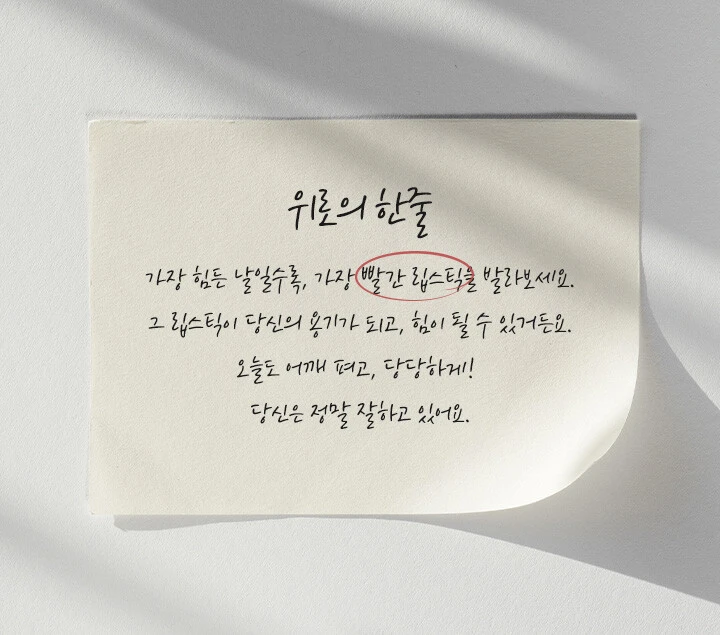 위로의 한줄
가장 힘든 날일수록, 가장 빨간 립스틱을 발라보세요.
그 립스틱이 당신의 용기가 되고, 힘이 될 수 있거든요.
오늘도 어깨 펴고, 당당하게!
당신은 정말 잘하고 있어요.